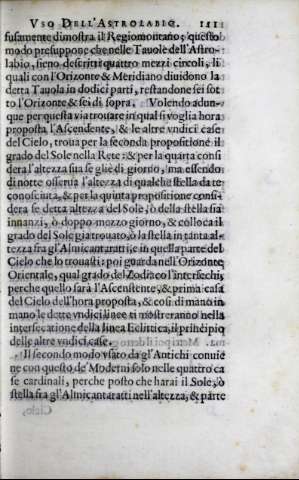 Vso Dell'Astrolabio. 111
fusamente dimostra il Regiomontano; questo
modo presuppone che nelle Tauole dell'Astro-
labio, sieno descritti quattro mezzi circoli, li
quali con l'Orizonte & Meridiano diuidono la
detta Tauola in dodici parti, restandone sei sot
to l'Orizonte & sei di sopra. Volendo adun-
que per questa via trouare in qual si voglia hora
proposta l'Ascendente, & le altre vndici case
del Cielo, troua per la seconda propositione il
grado del Sole nella Rete: & per la quarta consi
dera l'altezza sua se gliè di giorno, ma essendo
di notte osserua l'altezza di qualche stella da te
conosciuta, & per la quinta propositione consi-
dera se detta altezza del Sole, ò della stella sia
innanzi, ò doppo mezzo giorno, & colloca il
grado del Sole già trouato, ò la stella in tanta al-
tezza fra gl'Almicantaratti, e in quella parte del
Cielo che lo trouasti: poi guarda nell'Orizonte
Orientale, qual grado del Zodiaco l'intersechi,
perche quello sarà l'Ascenstente, & prima casa
del Cielo dell'hora proposta, & così di mano in
mano le dette vndici linee ti mostreranno nella
intersecatione della linea Eclittica, il principio
delle altre vndici case.
Il secondo modo vsato da gl'Antichi conuie
ne con questo de' Moderni solo nelle quattro ca
se cardinali, perche posto che harai il Sole, ò
stella fra gl'Almicantaratti nell'altezza, & parte